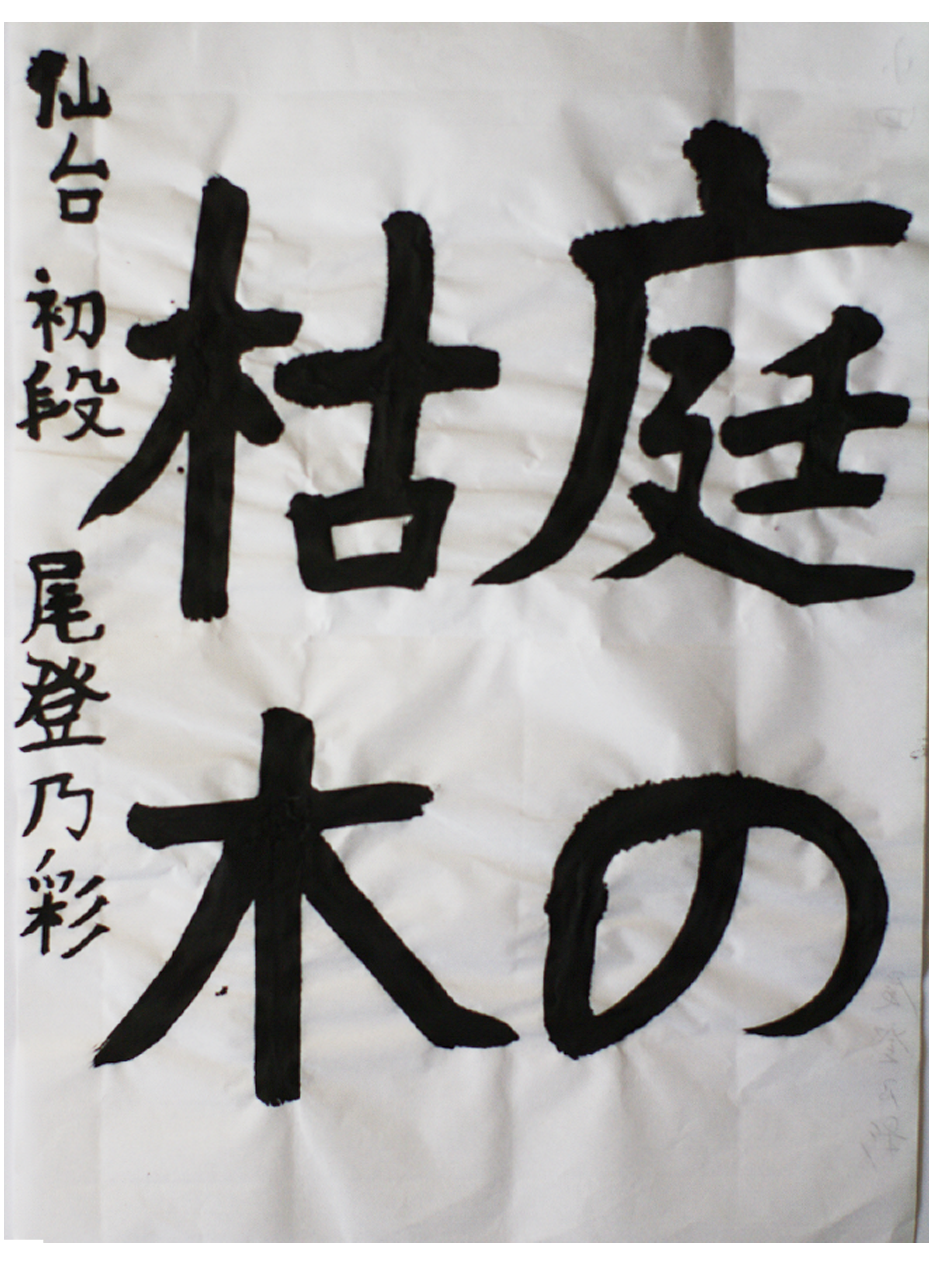 庭の
枯木
仙台 初段 尾登乃彩